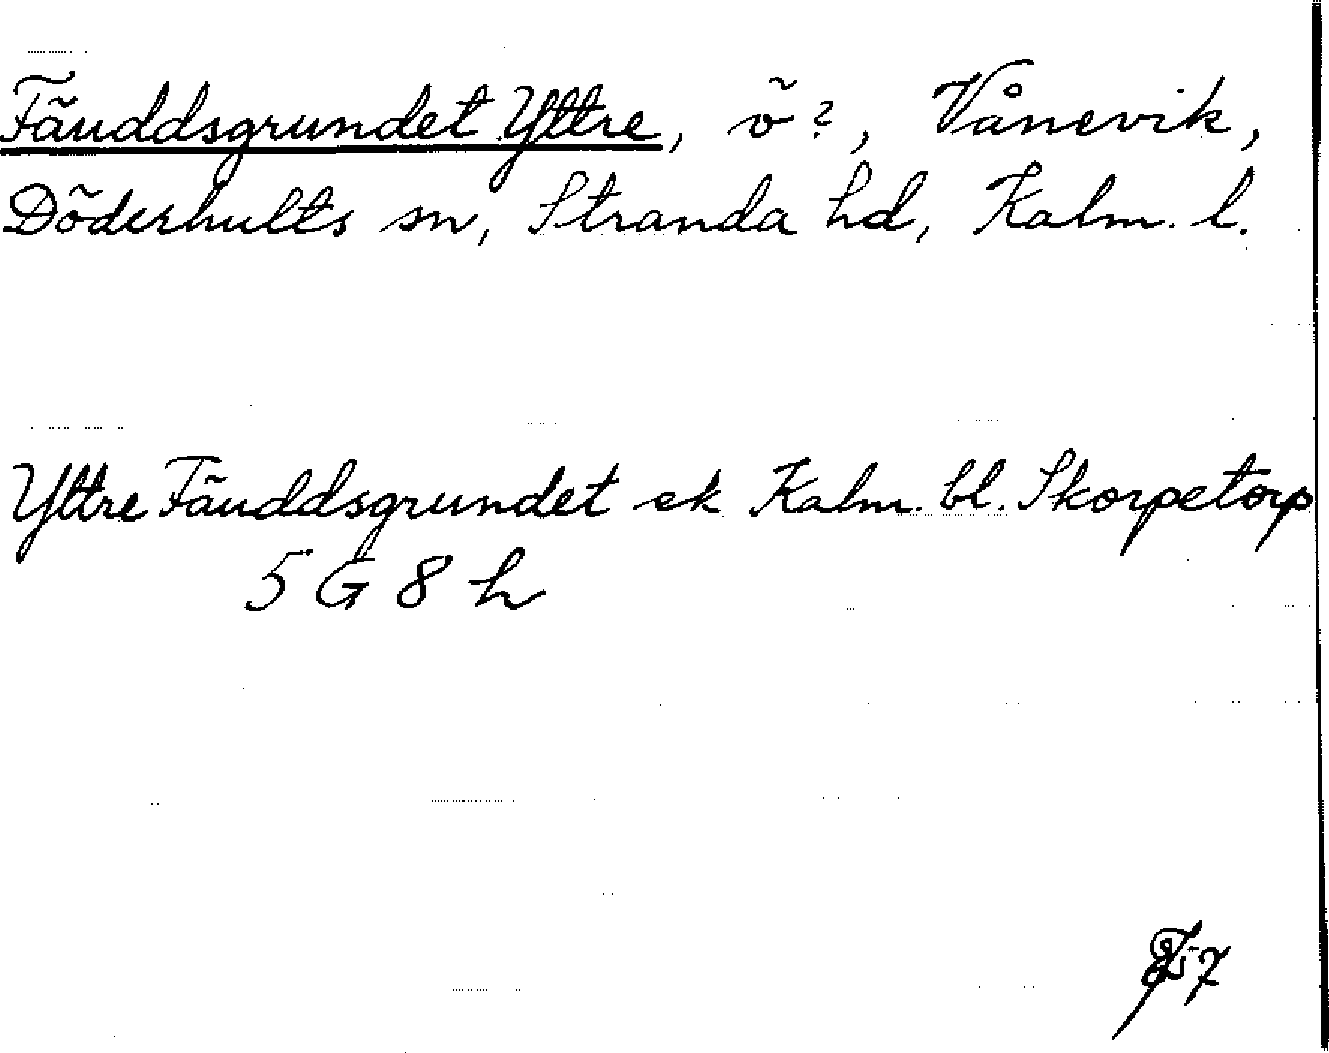 Fäuddsgrundet Yttre, ö?, Vånevik,
Döderhults sn, Stranda hd, Kalm. l.
Yttre Fäuddsgrundet ek Kalm. bl. Skorpetorp
5 G 8 h